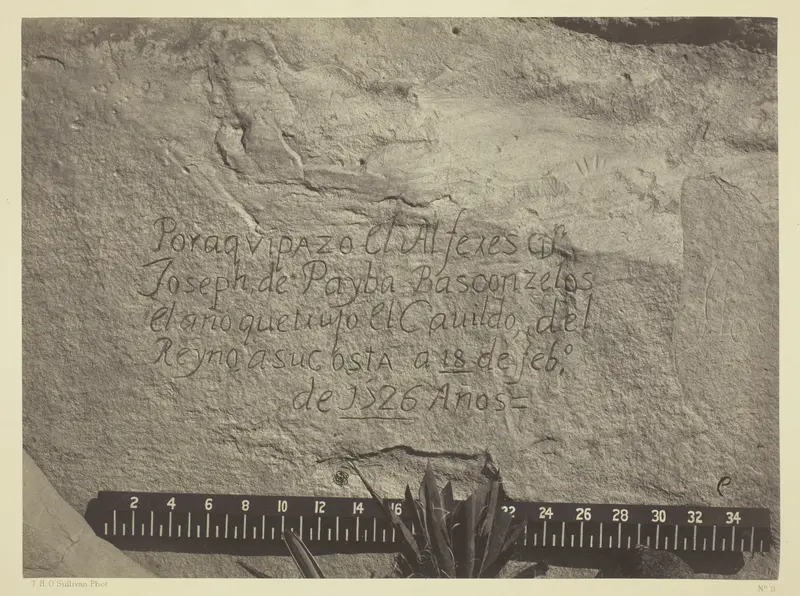 Por aqvi pazo el Alferes Dn
Joseph de Payba Basconzelos
el año que trujo el Cauildo del
Reyno a su costa a 18 de febo
de 1526 Años=
2 4 6 8 10 12 14 16 22 24 26 28 30 32 34
T. H. O'Sullivan Phot.
No. 11